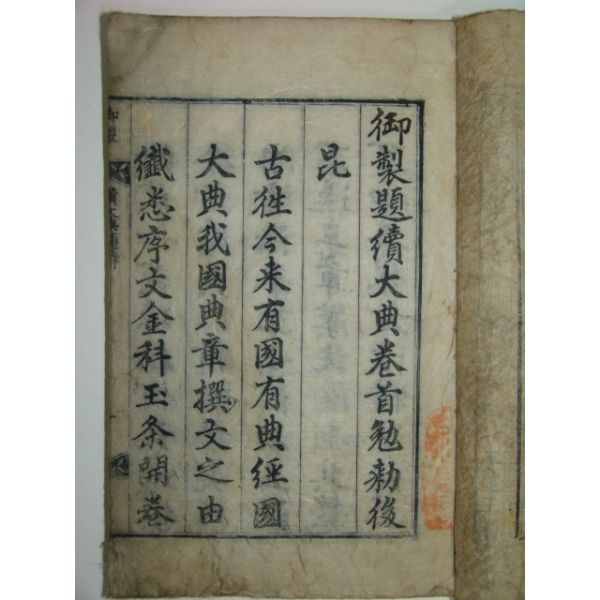 御製題續大典卷首勉勅後
昆
古徃今来有國有典經國
大典我國典章撰文之由
纖悉序文金科玉条開卷
御製